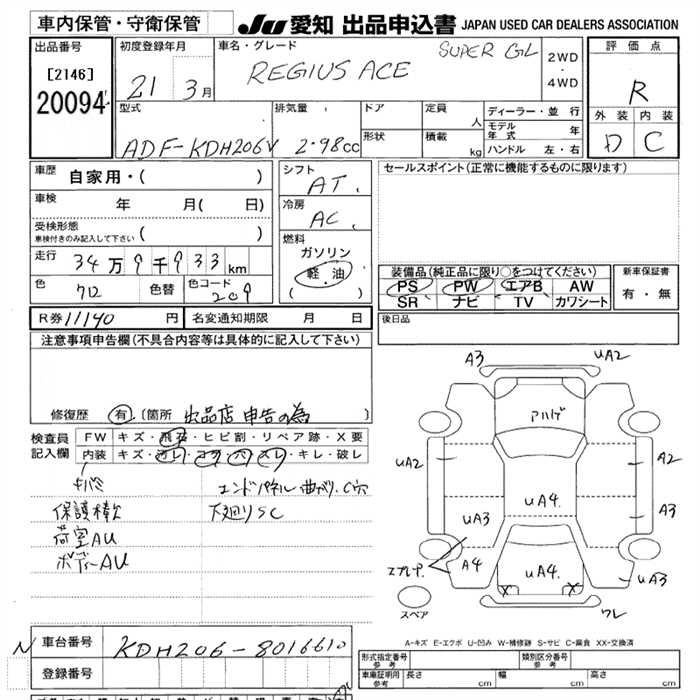 車内保管・守衛保管
JU 愛知 出品申込書 JAPAN USED CAR DEALERS ASSOCIATION
出品番号
[2146]
20094
初度登録年月
21 3月
車名・グレード
REGIUS ACE SUPER GL
2WD
・
4WD
評価点
R
外装 内装
D C
型式
ADF-KDH206V
排気量
2.98cc
ドア
形状
定員 人
積載 kg
ディーラー・並行
モデル年式 年
ハンドル 左・右
車歴
自家用・( )
車検
年 月( 日)
受検形態
車検付きのみ記入して下さい ( )
走行
34万9千933km
色
クロ
色替
色コード
209
シフト
AT
冷房
AC
燃料
ガソリン
軽油
( )
セールスポイント(正常に機能するものに限ります)
装備品(純正品に限り○をつけてください)
PS PW エアB AW
SR ナビ TV カワシート
新車保証書
有・無
R券 11140 円
名変通知期限 月 日
後日品
注意事項申告欄(不具合内容等は具体的に記入して下さい)
修復歴 有 [箇所 出品店申告の為 ]
検査員
記入欄
FW キズ・飛石・ヒビ割・リペア跡・X要
内装 キズ・ヨゴレ・コゲ・穴・スレ・キレ・破レ
キバミ
保護棒欠
荷室AU
ボディーAU
エンドパネル曲がり、C穴
下廻りSC
A3 UA2
アハゲ
UA2 A2
UA4.
UA3 A3
スプレー. A4 UA4. UA3
X X
スペア ワレ
A-キズ E-エクボ U-凹み W-補修跡 S-サビ C-腐食 XX-交換済
N
車台番号
KDH206-8016610
登録番号
形式指定番号
参考
類別区分番号
参考
車庫証明用
参考
長さ cm 幅 cm 高さ cm